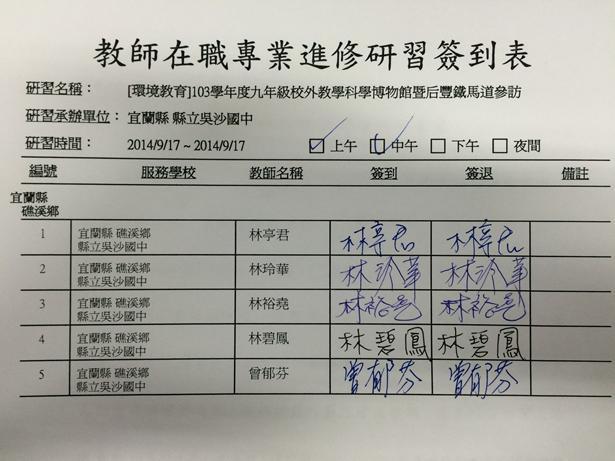 教師在職專業進修研習簽到表
研習名稱： [環境教育]103學年度九年級校外教學科學博物館暨后豐鐵馬道參訪
研習承辦單位： 宜蘭縣 縣立吳沙國中
研習時間： 2014/9/17 ~ 2014/9/17 上午 中午 下午 夜間
編號 服務學校 教師名稱 簽到 簽退 備註
宜蘭縣
礁溪鄉
1 宜蘭縣 礁溪鄉 林亭君 林亭君 林亭君
縣立吳沙國中
2 宜蘭縣 礁溪鄉 林玲華 林玲華 林玲華
縣立吳沙國中
3 宜蘭縣 礁溪鄉 林裕堯 林裕堯 林裕堯
縣立吳沙國中
4 宜蘭縣 礁溪鄉 林碧鳳 林碧鳳 林碧鳳
縣立吳沙國中
5 宜蘭縣 礁溪鄉 曾郁芬 曾郁芬 曾郁芬
縣立吳沙國中